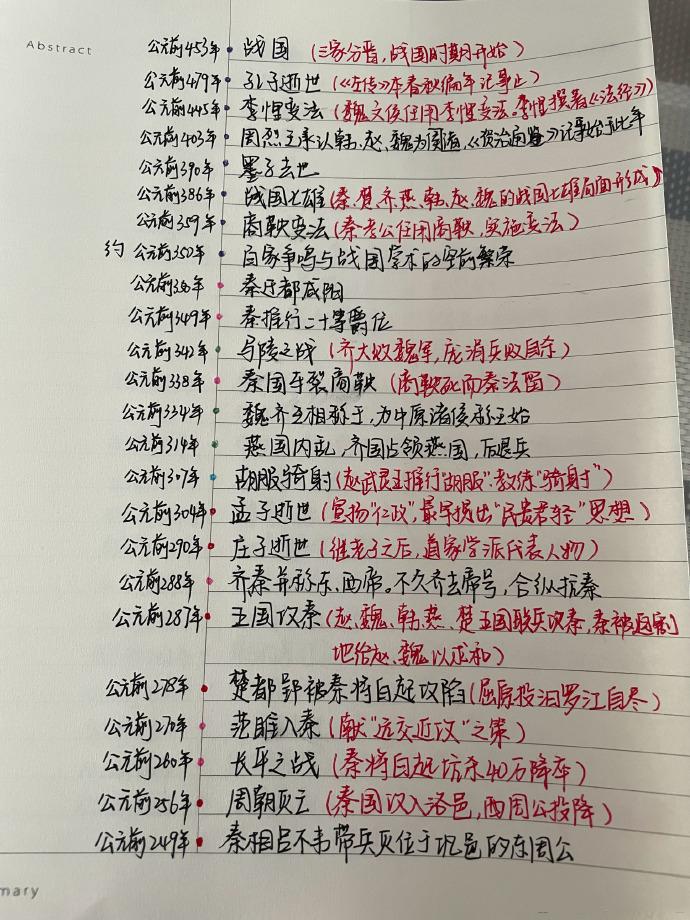 Abstract
公元前453年 战国 (三家分晋,战国时期开始)
公元前479年 孔子逝世 (《左传》本春秋编年记事止)
公元前445年 李悝变法 (魏文侯任用李悝变法。李悝撰着《法经》)
公元前403年 周烈王承认韩、赵、魏为诸侯,《资治通鉴》记事始于此年
公元前390年 墨子去世
公元前386年 战国七雄 (秦、楚、齐、燕、韩、赵、魏的战国七雄局面形成)
公元前359年 商鞅变法 (秦孝公任用商鞅,实施变法)
约 公元前350年 百家争鸣与战国学术的空前繁荣
公元前350年 秦迁都咸阳
公元前349年 秦推行二十等爵位
公元前342年 马陵之战 (齐大败魏军,庞涓兵败自杀)
公元前338年 秦国车裂商鞅 (商鞅死而秦法留)
公元前334年 魏齐互相称王,为中原诸侯称王始
公元前314年 燕国内乱,齐国占领燕国,后退兵
公元前307年 胡服骑射 (赵武灵王推行"胡服".教练"骑射")
公元前304年 孟子逝世 (宣扬"仁政",最早提出"民贵君轻"思想)
公元前290年 庄子逝世 (继老子之后,道家学派代表人物)
公元前288年 齐秦并称东、西帝。不久齐去帝号,合纵抗秦
公元前287年 五国攻秦 (赵、魏、韩、燕、楚五国联兵攻秦,秦被迫割
地给赵、魏以求和)
公元前278年 楚都郢被秦将白起攻陷 (屈原投汨罗江自尽)
公元前270年 范雎入秦 (献"远交近攻"之策)
公元前260年 长平之战 (秦将白起坑杀40万降卒)
公元前256年 周朝灭亡 (秦国攻入洛邑,西周公投降)
公元前249年 秦相吕不韦带兵灭位于巩邑的东周公
mary